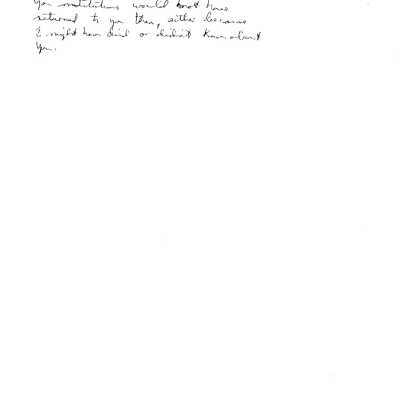 You institutions would not have
returned to you then, either because
I might have died or didn't know about
you.